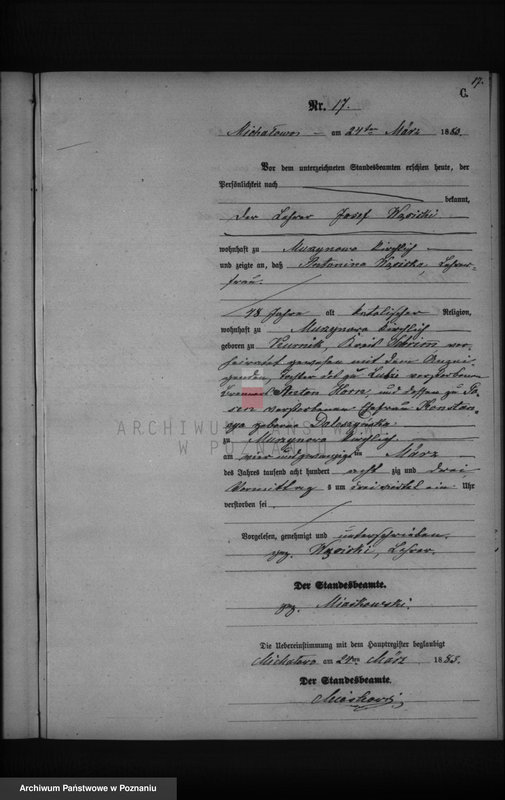 17.
C.
Nr. 17.
Michałowo am 24ten März 1883.
Vor dem unterzeichneten Standesbeamten erschien heute, der
Persönlichkeit nach
bekannt,
der Lehrer Josef
wohnhaft zu Murzynowo kirchlich
und zeigte an, daß Antonina Lehrer-
frau.
48 Jahre alt katolischer Religion,
wohnhaft zu Murzynowo kirchlich
geboren zu Kurnik, Kreis Schrim ver-
heirathet gewesen mit dem Anzei-
genden, Tochter des zu verstorbenen
Anton Horn, und dessen zu Po-
sen verstorbenen Ehefrau Konstan-
geborene
zu Murzynowo kirchlich
am vier und zwanzigsten März
des Jahres tausend acht hundert acht zig und drei
Vormittags um drei viertel ein Uhr
verstorben sei
Vorgelesen, genehmigt und unterschrieben.
gez. Lehrer.
Der Standesbeamte.
gez. Miaskowski.
Die Uebereinstimmung mit dem Hauptregister beglaubigt
Michałowo am 24ten März 1883.
Der Standesbeamte.
Miaskowski
ARCHIWUM PAŃSTWOWE
W POZNANIU
Archiwum Państwowe w Poznaniu